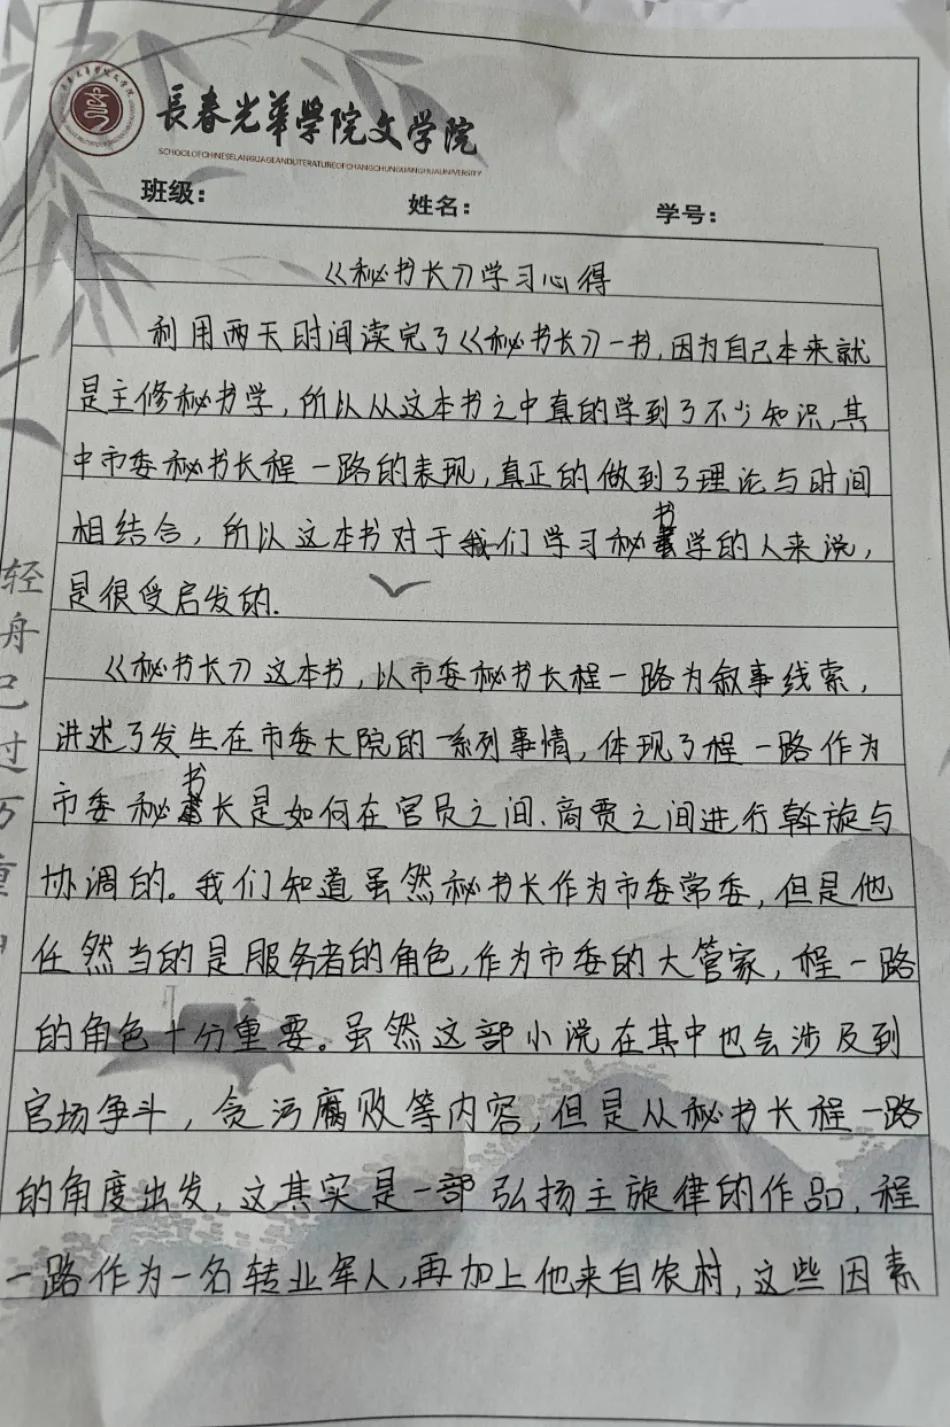 長春光華學院文学院
SCHOOLOFCHINESELANGUAGEANDLITERATUREOFCHANGCHUNGUANGHUAUNIVERSITY
班级： 姓名： 学号：
《秘书长》学习心得
利用两天时间读完了《秘书长》一书，因为自己本来就
是主修秘书学，所以从这本书之中真的学到了不少知识，其
中市委秘书长程一路的表现，真正的做到了理论与时间
相结合，所以这本书对于我们学习秘书学的人来说，
是很受启发的.
《秘书长》这本书，以市委秘书长程一路为叙事线索，
讲述了发生在市委大院的一系列事情，体现了程一路作为
市委秘书长是如何在官员之间、商贾之间进行斡旋与
协调的。我们知道虽然秘书长作为市委常委，但是他
任然当的是服务者的角色，作为市委的大管家，程一路
的角色十分重要。虽然这部小说在其中也会涉及到
官场争斗，贪污腐败等内容，但是从秘书长程一路
的角度出发，这其实是一部弘扬主旋律的作品，程
一路作为一名转业军人，再加上他来自农村，这些因素
轻舟已过万重